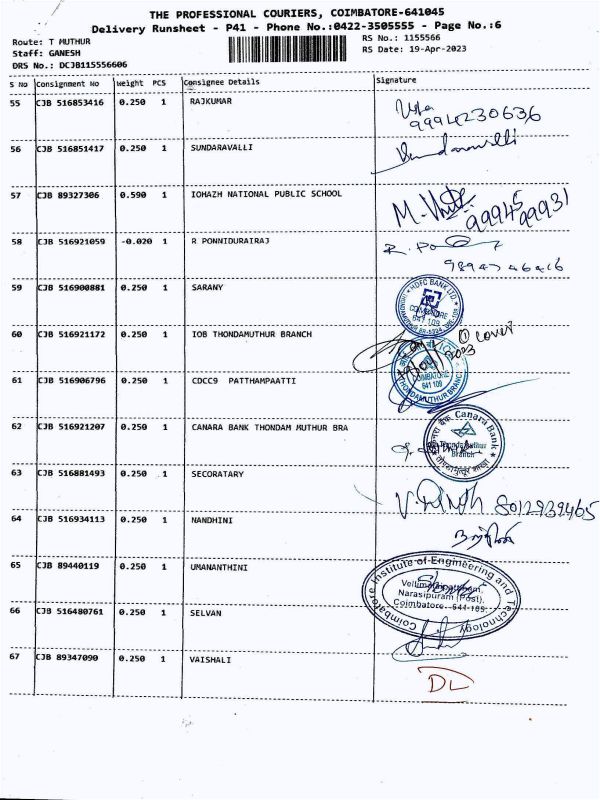 THE PROFESSIONAL COURIERS, COIMBATORE-641045
Delivery Runsheet - P41 - Phone No.:0422-3505555 - Page No.:6
Route: T MUTHUR
RS No.: 1155566
Staff: GANESH
RS Date: 19-Apr-2023
DRS No.: DCJB115556606
S No Consignment No Weight PCS Consignee Details Signature
55 CJB 516853416 0.250 1 RAJKUMAR
99942 30636
56 CJB 516851417 0.250 1 SUNDARAVALLI
Sundaravalli
57 CJB 89327306 0.590 1 IOHAZH NATIONAL PUBLIC SCHOOL
99945 99931
58 CJB 516921059 -0.020 1 R PONNIDURAIRAJ
59 CJB 516900881 0.250 1 SARANY
HDFC BANK LTD
COIMBATORE
641 109
60 CJB 516921172 0.250 1 IOB THONDAMUTHUR BRANCH
① cover
2023
61 CJB 516906796 0.250 1 CDCC9 PATTHAMPAATTI
COIMBATORE
641 109
THONDAMUTHUR BRANCH
62 CJB 516921207 0.250 1 CANARA BANK THONDAM MUTHUR BRA
Canara Bank
Thondamuthur
Branch
63 CJB 516881493 0.250 1 SECORATARY
8012939465
64 CJB 516934113 0.250 1 NANDHINI
நந்தினி
65 CJB 89440119 0.250 1 UMANANTHINI
Coimbatore Institute of Engineering and Technology
Narasipuram (Post),
Coimbatore - 641 109.
66 CJB 516480761 0.250 1 SELVAN
67 CJB 89347090 0.250 1 VAISHALI
DL